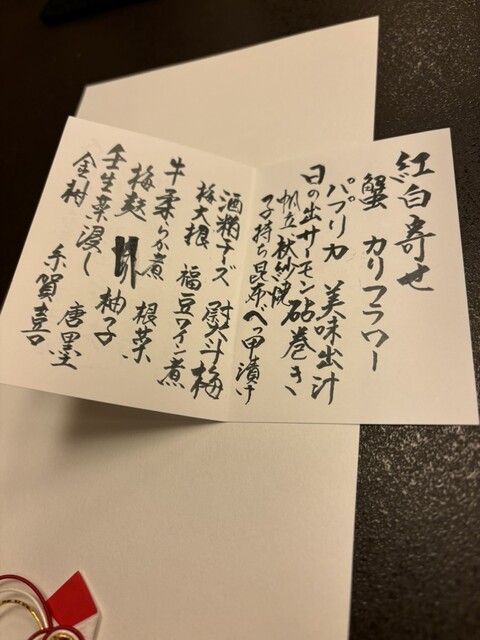 紅白寄せ
蟹 カリフラワー
パプリカ 美味出汁
日の出サーモン砧巻き
帆立袱紗焼
子持ち昆布べっ甲漬け
酒粕チーズ 熨斗梅
梅大根 福豆ワイン煮
牛柔らか煮 根菜
梅麩 柚子
壬生菜浸し 唐墨
金柑 多賀喜口